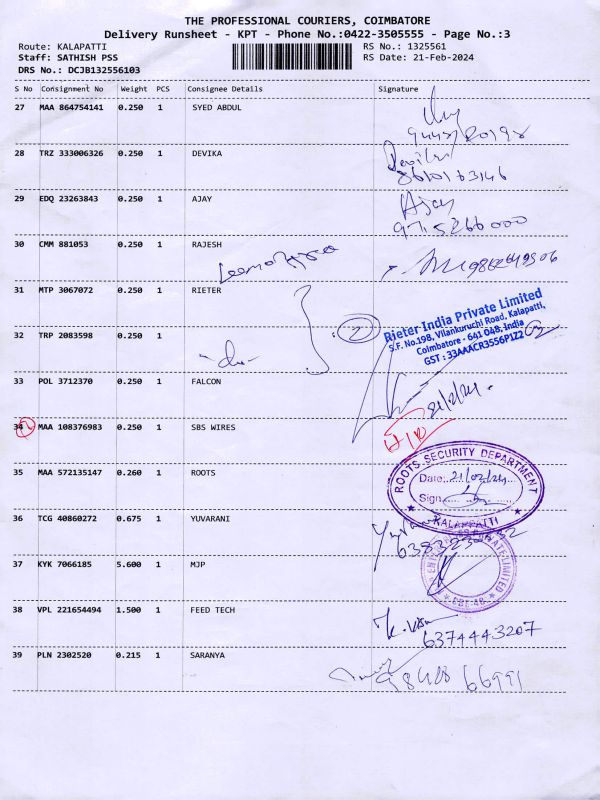 THE PROFESSIONAL COURIERS, COIMBATORE
Delivery Runsheet - KPT - Phone No.:0422-3505555 - Page No.:3
Route: KALAPATTI RS No.: 1325561
Staff: SATHISH PSS RS Date: 21-Feb-2024
DRS No.: DCJB132556103
S No Consignment No Weight PCS Consignee Details Signature
27 MAA 864754141 0.250 1 SYED ABDUL
28 TRZ 333006326 0.250 1 DEVIKA
8610163146
29 EDQ 23263843 0.250 1 AJAY Ajay
9715266000
30 CMM 881053 0.250 1 RAJESH
31 MTP 3067072 0.250 1 RIETER
Rieter India Private Limited
S.F. No.198, Vilankuruchi Road, Kalapatti,
Coimbatore - 641 048, India
GST : 33AAACR3556P1Z2
32 TRP 2083598 0.250 1
- do - 2
33 POL 3712370 0.250 1 FALCON
21/2/24
34 MAA 108376983 0.250 1 SBS WIRES
35 MAA 572135147 0.260 1 ROOTS
ROOTS SECURITY DEPARTMENT
Date: 21/02/24
Sign
KALAPPATTI
36 TCG 40860272 0.675 1 YUVARANI
37 KYK 7066185 5.600 1 MJP
38 VPL 221654494 1.500 1 FEED TECH
6374443207
39 PLN 2302520 0.215 1 SARANYA
98428 66991